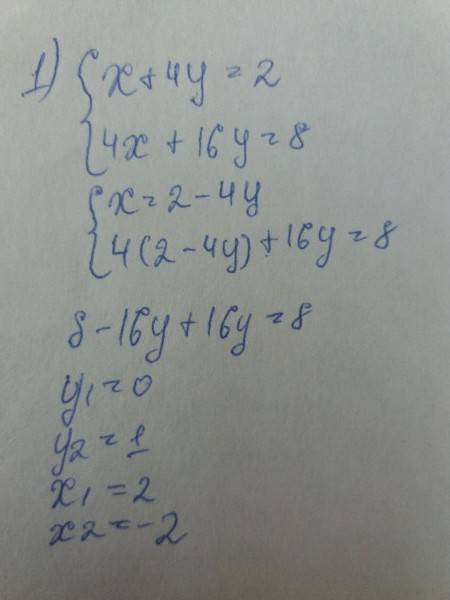 1) { x + 4y = 2
4x + 16y = 8
{ x = 2 - 4y
4(2 - 4y) + 16y = 8
8 - 16y + 16y = 8
y1 = 0
y2 = 1
x1 = 2
x2 = -2